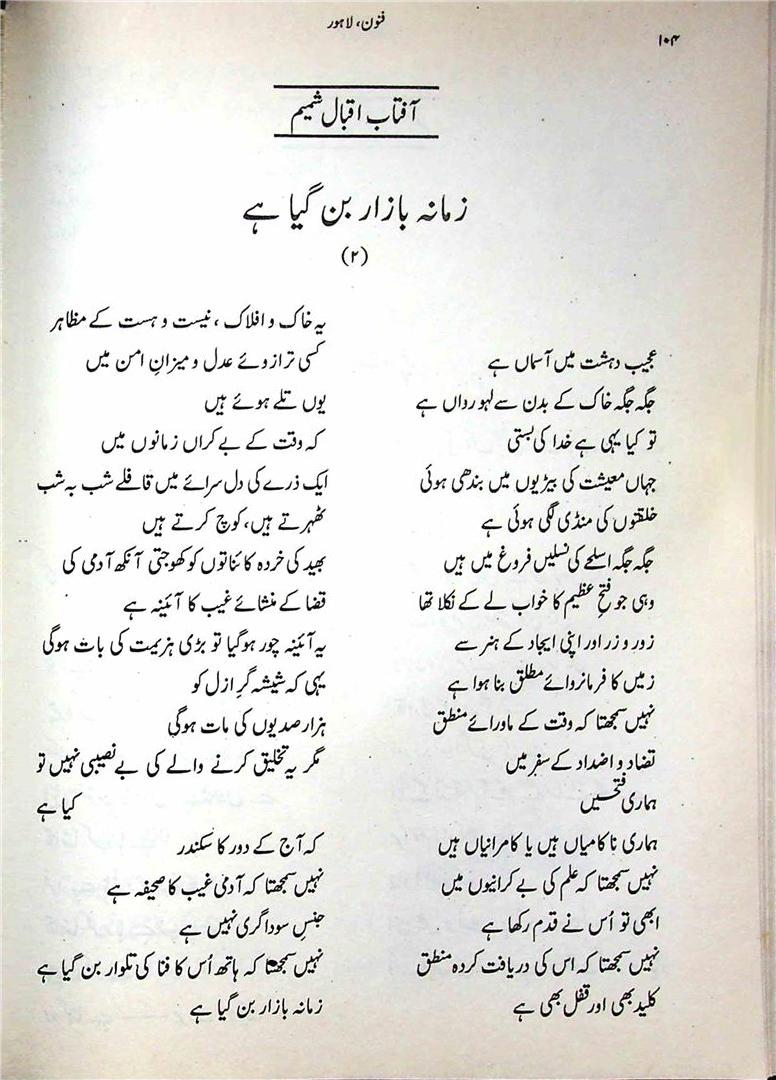 فنون، لاہور
۱۰۴
آفتاب اقبال شمیم
زمانہ بازار بن گیا ہے
(۲)
عجیب دہشت میں آسماں ہے
جگہ جگہ خاک کے بدن سے لہو رواں ہے
تو کیا یہی ہے خدا کی بستی
جہاں معیشت کی بیڑیوں میں بندھی ہوئی
خلقتوں کی منڈی لگی ہوئی ہے
جگہ جگہ اسلحے کی نسلیں فروغ میں ہیں
وہی جو فتحِ عظیم کا خواب لے کے نکلا تھا
زور و زر اور اپنی ایجاد کے ہنر سے
زمیں کا فرمانروائے مطلق بنا ہوا ہے
نہیں سمجھتا کہ وقت کے ماورائے منطق
تضاد و اضداد کے سفر میں
ہماری فتحیں
ہماری ناکامیاں ہیں یا کامرانیاں ہیں
نہیں سمجھتا کہ علم کی بے کرانیوں میں
ابھی تو اُس نے قدم رکھا ہے
نہیں سمجھتا کہ اس کی دریافت کردہ منطق
کلید بھی اور قفل بھی ہے
یہ خاک و افلاک، نیست و ہست کے مظاہر
کسی ترازوئے عدل و میزانِ امن میں
یوں تلے ہوئے ہیں
کہ وقت کے بے کراں زمانوں میں
ایک ذرے کی دل سرائے میں قافلے شب بہ شب
ٹھہرتے ہیں، کوچ کرتے ہیں
بھید کی خردہ کائناتوں کو کھوجتی آنکھ آدمی کی
قضا کے منشائے غیب کا آئینہ ہے
یہ آئینہ چور ہوگیا تو بڑی ہزیمت کی بات ہوگی
یہی کہ شیشہ گرِ ازل کو
ہزار صدیوں کی مات ہوگی
مگر یہ تخلیق کرنے والے کی بے نصیبی نہیں تو
کیا ہے
کہ آج کے دور کا سکندر
نہیں سمجھتا کہ آدمی غیب کا صحیفہ ہے
جنسِ سوداگری نہیں ہے
نہیں سمجھتا کہ ہاتھ اُس کا فنا کی تلوار بن گیا ہے
زمانہ بازار بن گیا ہے